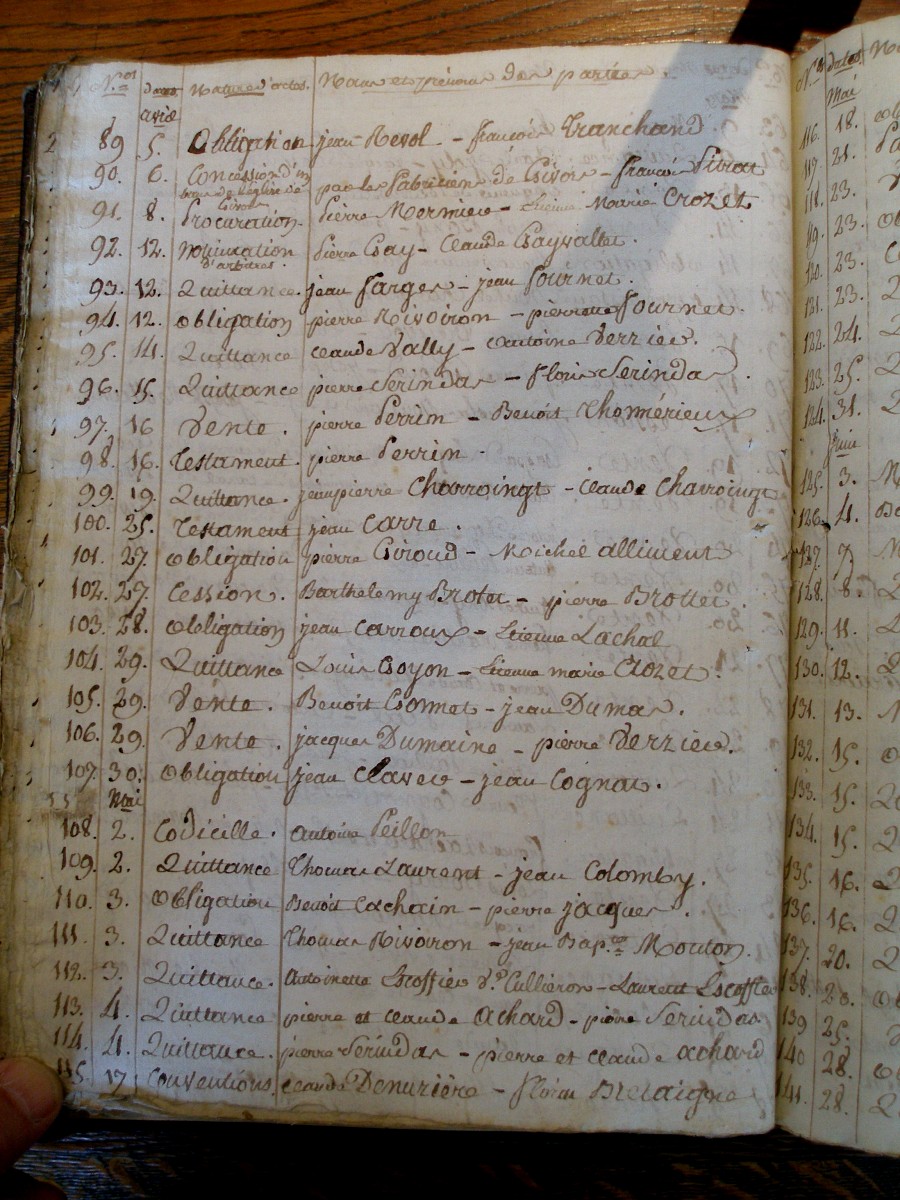 Nos dates Nature d'actes Noms et prénoms des parties.
avril
89 5. Obligation jean Revol - françois Tranchand
90. 6. Concession d'un
banc de l'église de
Givors par les fabriciens de Givors - françois Pitiot
91. 8. Procuration. Pierre Mermier - Etienne Marie Crozet
92. 12. Nomination
d'arbitres. Pierre Gay - Claude Gayvallet.
93. 12. Quittance. jean farges - jean fournet.
94. 12. obligation pierre Rivoiron - pierre fournet.
95. 14. Quittance Claude Vally - antoine Verzier.
96. 15. Quittance pierre Serindas - floris Serindas.
97. 16 Vente. pierre Perrin - Benoît Thomérieux
98. 16. Testament. pierre Perrin.
99. 19. Quittance. jeanpierre Charroingt - Claude Charroingt
100. 25. Testament jean Carre.
101. 27. obligation pierre Giroud - Michel alliment
102. 27. Cession. Barthelemy Brotet - pierre Brottet.
103. 28. obligation jean Carroux - Etienne Lachal
104. 29. Quittance Louis Goyon - Etienne marie Crozet.
105. 29. Vente. Benoit Gormet - jean Dumas.
106. 29. Vente. jacques Dumaine - pierre Verzier.
107. 30. obligation jean Clavel - jean Cognas.
Mai
108. 2. Codicille. antoine Peillon
109. 2. Quittance Thomas Laurent - jean Colomby.
110. 3. obligation Benoît Cachain - pierre jacques.
111. 3. Quittance Thomas Rivoiron - jean Bap.te Mouton.
112. 3. Quittance. Antoinette Escoffier Ve Cullieron - Laurent Escoffier
113. 4. Quittance pierre et claude Achard - pierre Serindas
114. 4. Quittance. pierre Serindas - pierre et claude achard
115. 17 Conventions. Claude Denuzière - floris Bretaigne
Nos dates
Mai
116. 18.
117. 21.
118. 23.
119. 23.
120. 23.
121. 23.
122. 24.
123. 25.
124. 31.
juin
125. 3.
126. 4.
127. 7
128. 8.
129. 11.
130. 12.
131. 13.
132. 15.
133. 15.
134. 15
135. 16.
136. 16
137. 20.
138. 20.
139 25.
140 28.
141. 28.